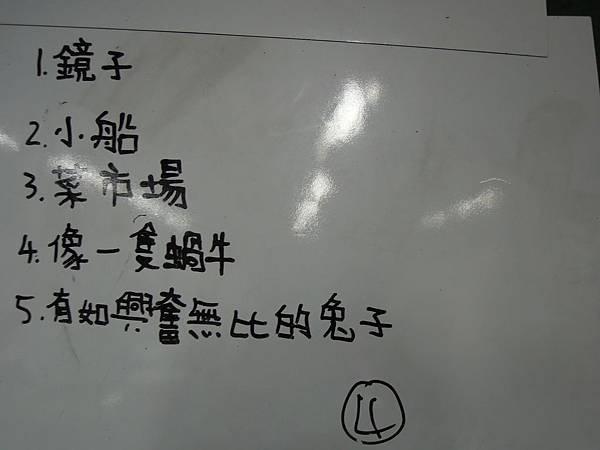 1.鏡子
2.小船
3.菜市場
4.像一隻蝸牛
5.有如興奮無比的兔子
4